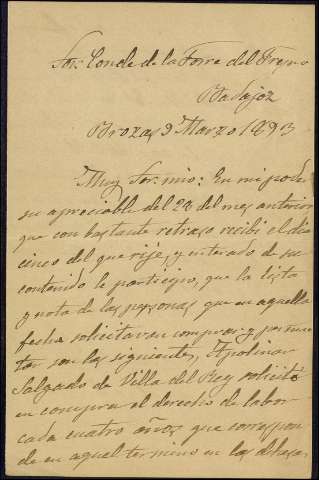 Sor. Conde de la Torre del Fresno
Badajoz
Brozas 9 Marzo 1893
Muy Sor. mio: En mi poder
su apreciable del 20 del mes anterior
que con bastante retraso recibi el dia
cinco del que rije, y enterado de su
contenido le participo, que la lista
y nota de las personas que en aquella
fecha solicitavan comprar y permu
tar son las siguientes, Apolinar
Salgado de Villa del Rey solicitó
en compra el derecho de labor
cada cuatro años que correspon
de en aquel termino en las dehesas